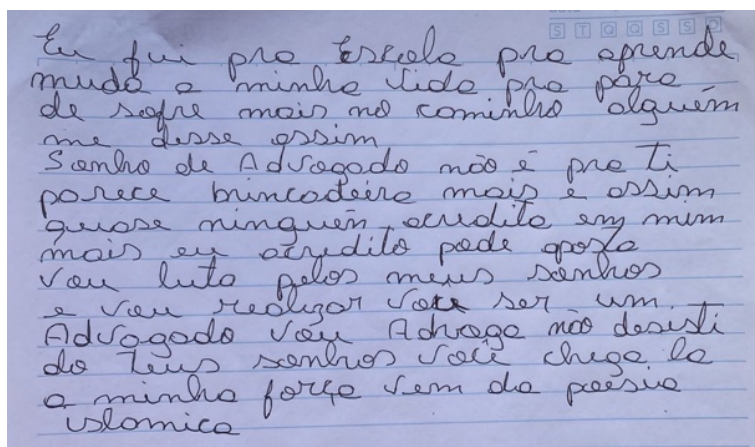 S T Q Q S S D
Eu fui pra Escola pra aprende
muda a minha vida pra para
de sofre mais no caminho alguém
me disse assim
Sonho de Advogado não é pra ti
parece brincadeira mais é assim
quase ninguém acredita em mim
mais eu acredito pode aposta
vou luta pelos meus sonhos
e vou realizar vou ser um
Advogado vou Advoga não desisti
do teus sonhos você chega la
a minha força vem da poesia
islamica